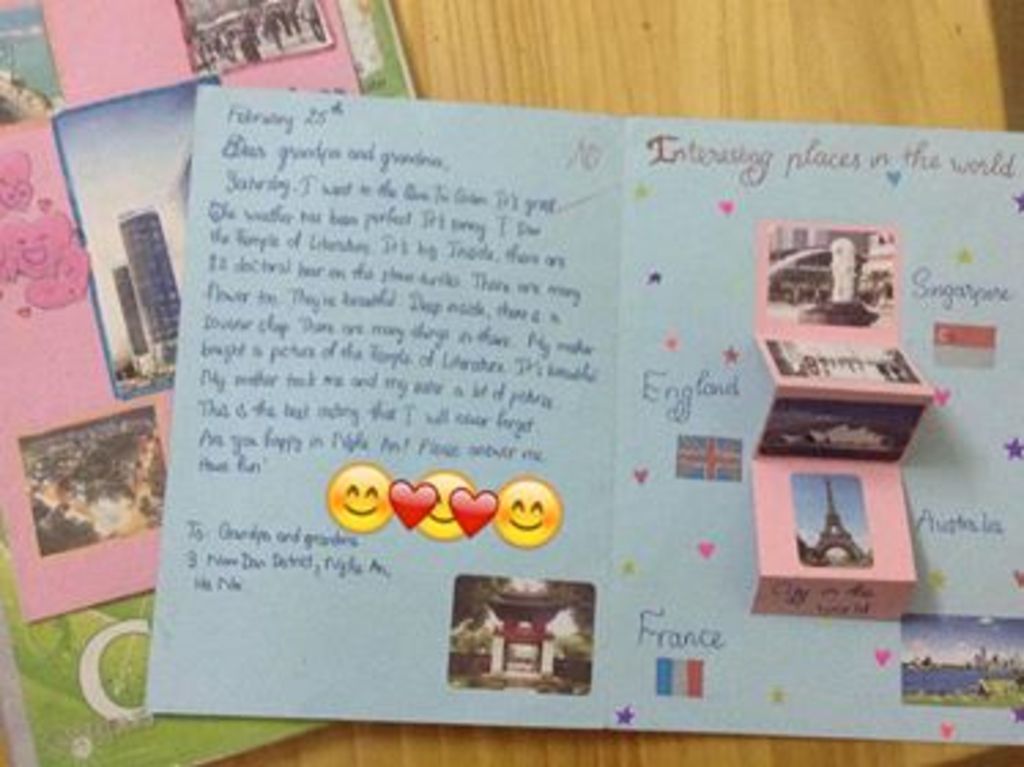 February 25th
Dear grandpa and grandma,
Saturday, I went to the It's great
The weather has been perfect. It's sunny. I saw
the Temple of Literature. It's big. Inside, there are
82 doctoral on the There are many
flower too. They're beautiful. Deep inside, there is a
souvenir shop. There are many things in there. My mother
bought a picture of the Temple of Literature. It's beautiful
My mother took me and my sister a lot of
This is the best that I will never forget
Are you happy in Nghe An? Please answer me
Have fun!
To: Grandpa and grandma
3 Nam Dan District, Nghe An,
Ha
Interesting places in the world
Singapore
England
Australia
France
City in the
world